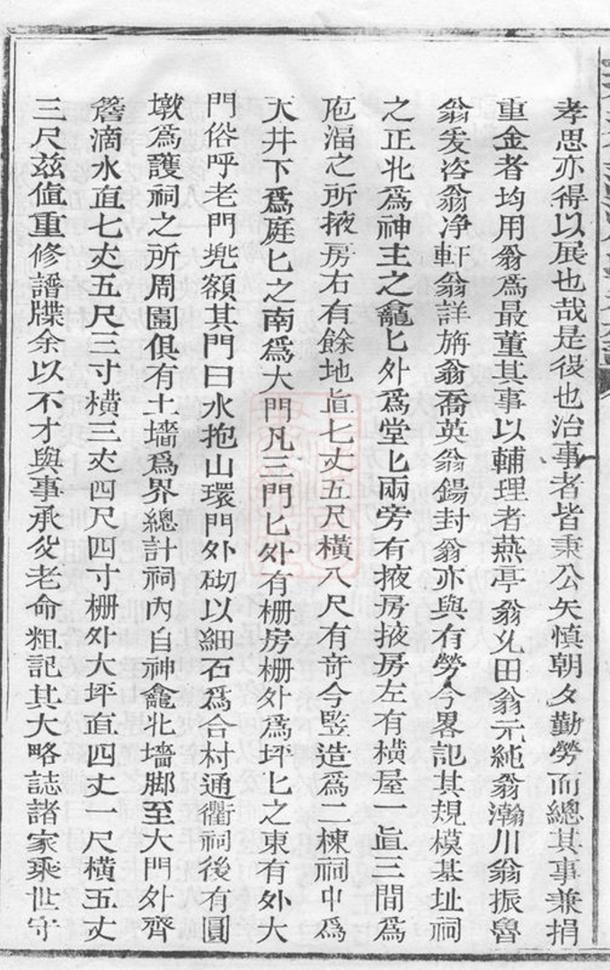 孝思亦得以展也哉是役也治事者皆秉公矢慎朝夕勤勞而總其事兼捐
重金者均用翁為最董其事以輔理者燕亭翁乂田翁元純翁瀚川翁振魯
翁爰咨翁净軒翁詳旃翁喬英翁鍚封翁亦與有勞今畧記其規模基址祠
之正北為神主之龕匕外為堂匕兩旁有掖房掖房左有橫屋一直三間為
庖湢之所掖房右有餘地直七丈五尺橫八尺有竒今豎造為二棟祠中為
大井下為庭匕之南為大門凡三門匕外有栅房栅外為坪匕之東有外大
門俗呼老門兠額其門曰水抱山環門外砌以細石為合村通衢祠後有圓
墩為護祠之所周圍俱有土墻為界總計祠內自神龕北墻脚至大門外齊
簷滴水直七丈五尺三寸橫三丈四尺四寸栅外大坪直四丈 尺橫五丈
三尺茲值重修譜牒余以不才與事承父老命粗記其大略誌諸家乘世守